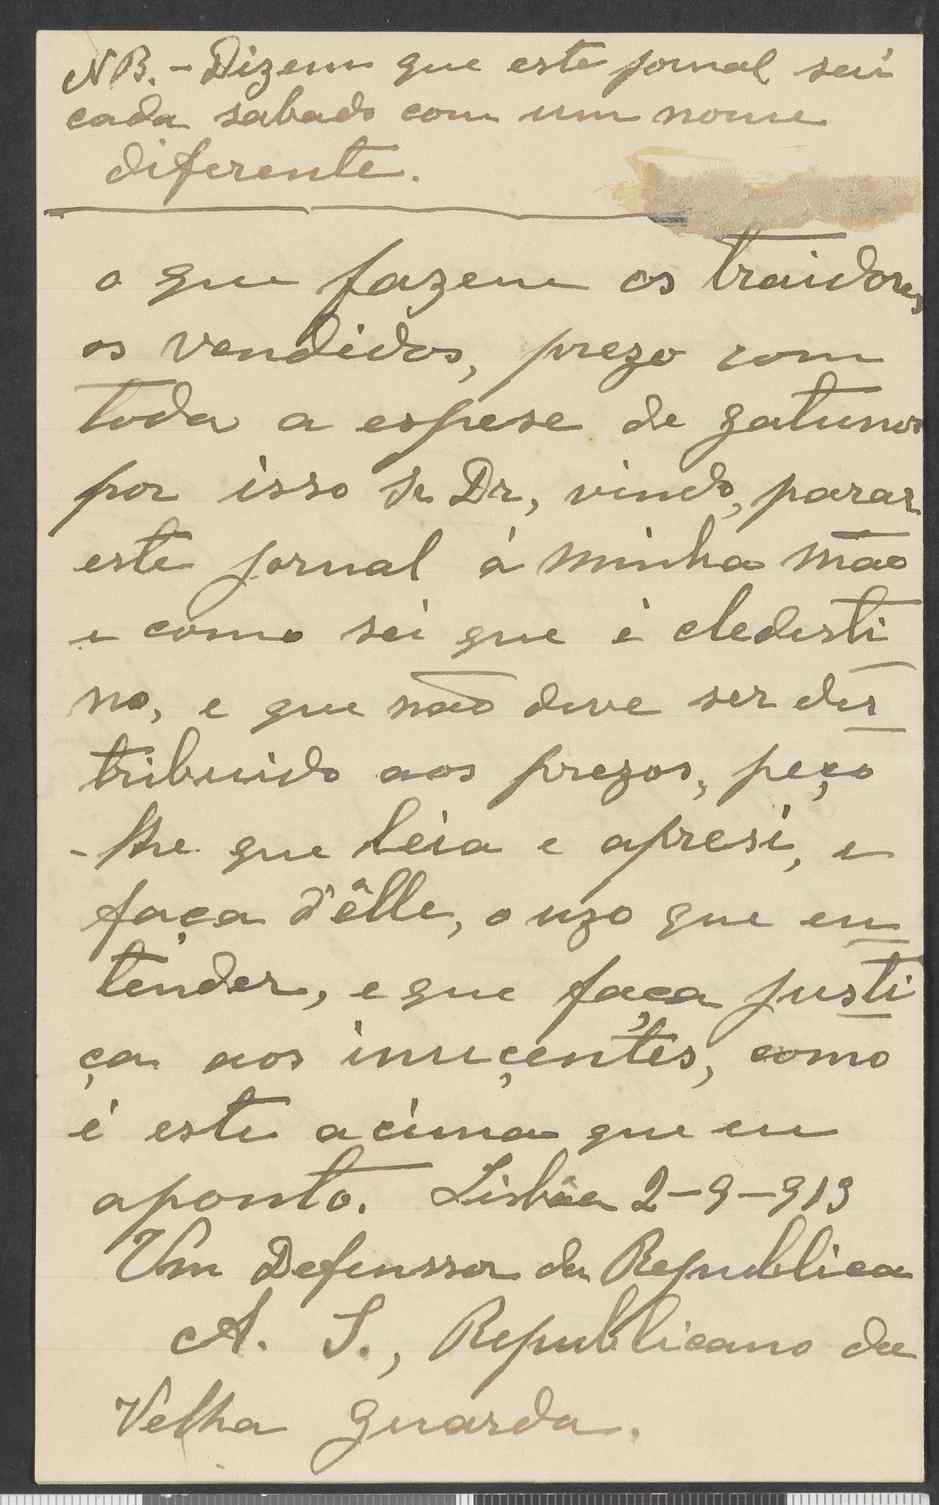 NB. - Dizem que este jornal sai
cada sabado com um nome
diferente.
o que fazem os traidores
os vendidos, prezo com
toda a espese de gatunos
por isso Sr Dr, vindo, parar
este jornal á minha mão
e como sei que é cledesti
no, e que não deve ser dis
tribuido aos prezos, peço
-lhe que leia e apresi, e
faça d'êlle, o uzo que en
tender, e que faça justi
ça aos inuçentes, como
é este acima que eu
aponto. Lisbôa 2-9-913
Um Defenssor da Republica
A. S., Republicano da
Velha Guarda.